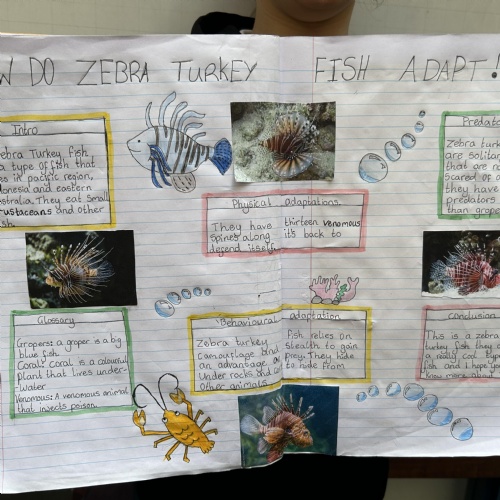 W DO ZEBRA TURKEY FISH ADAPT!
Intro
ebra Turkey fish
a type of fish that
es in pacific region,
donesia and eastern
ustralia. They eat small
rustaceans and other
sh.
Physical adaptations
They have thirteen venomous
spines along it's back to
defend itself
Predato
Zebra turk
are solitar
that are no
scared of o
they have
predators
than grope
Glossary
Gropers: a groper is a big
blue fish.
Coral: coral is a colourful
plant that lives under-
water
Venomous: A venomous animal
that injects poison.
Behavioural adaptation
Zebra turkey fish relies on
camouflage and stealth to gain
an advantage on prey. They hide
under rocks and to hide from
other animals.
conclusion
This is a zebra
turkey fish they a
a really cool typ
fish and I hope yo
know more abou